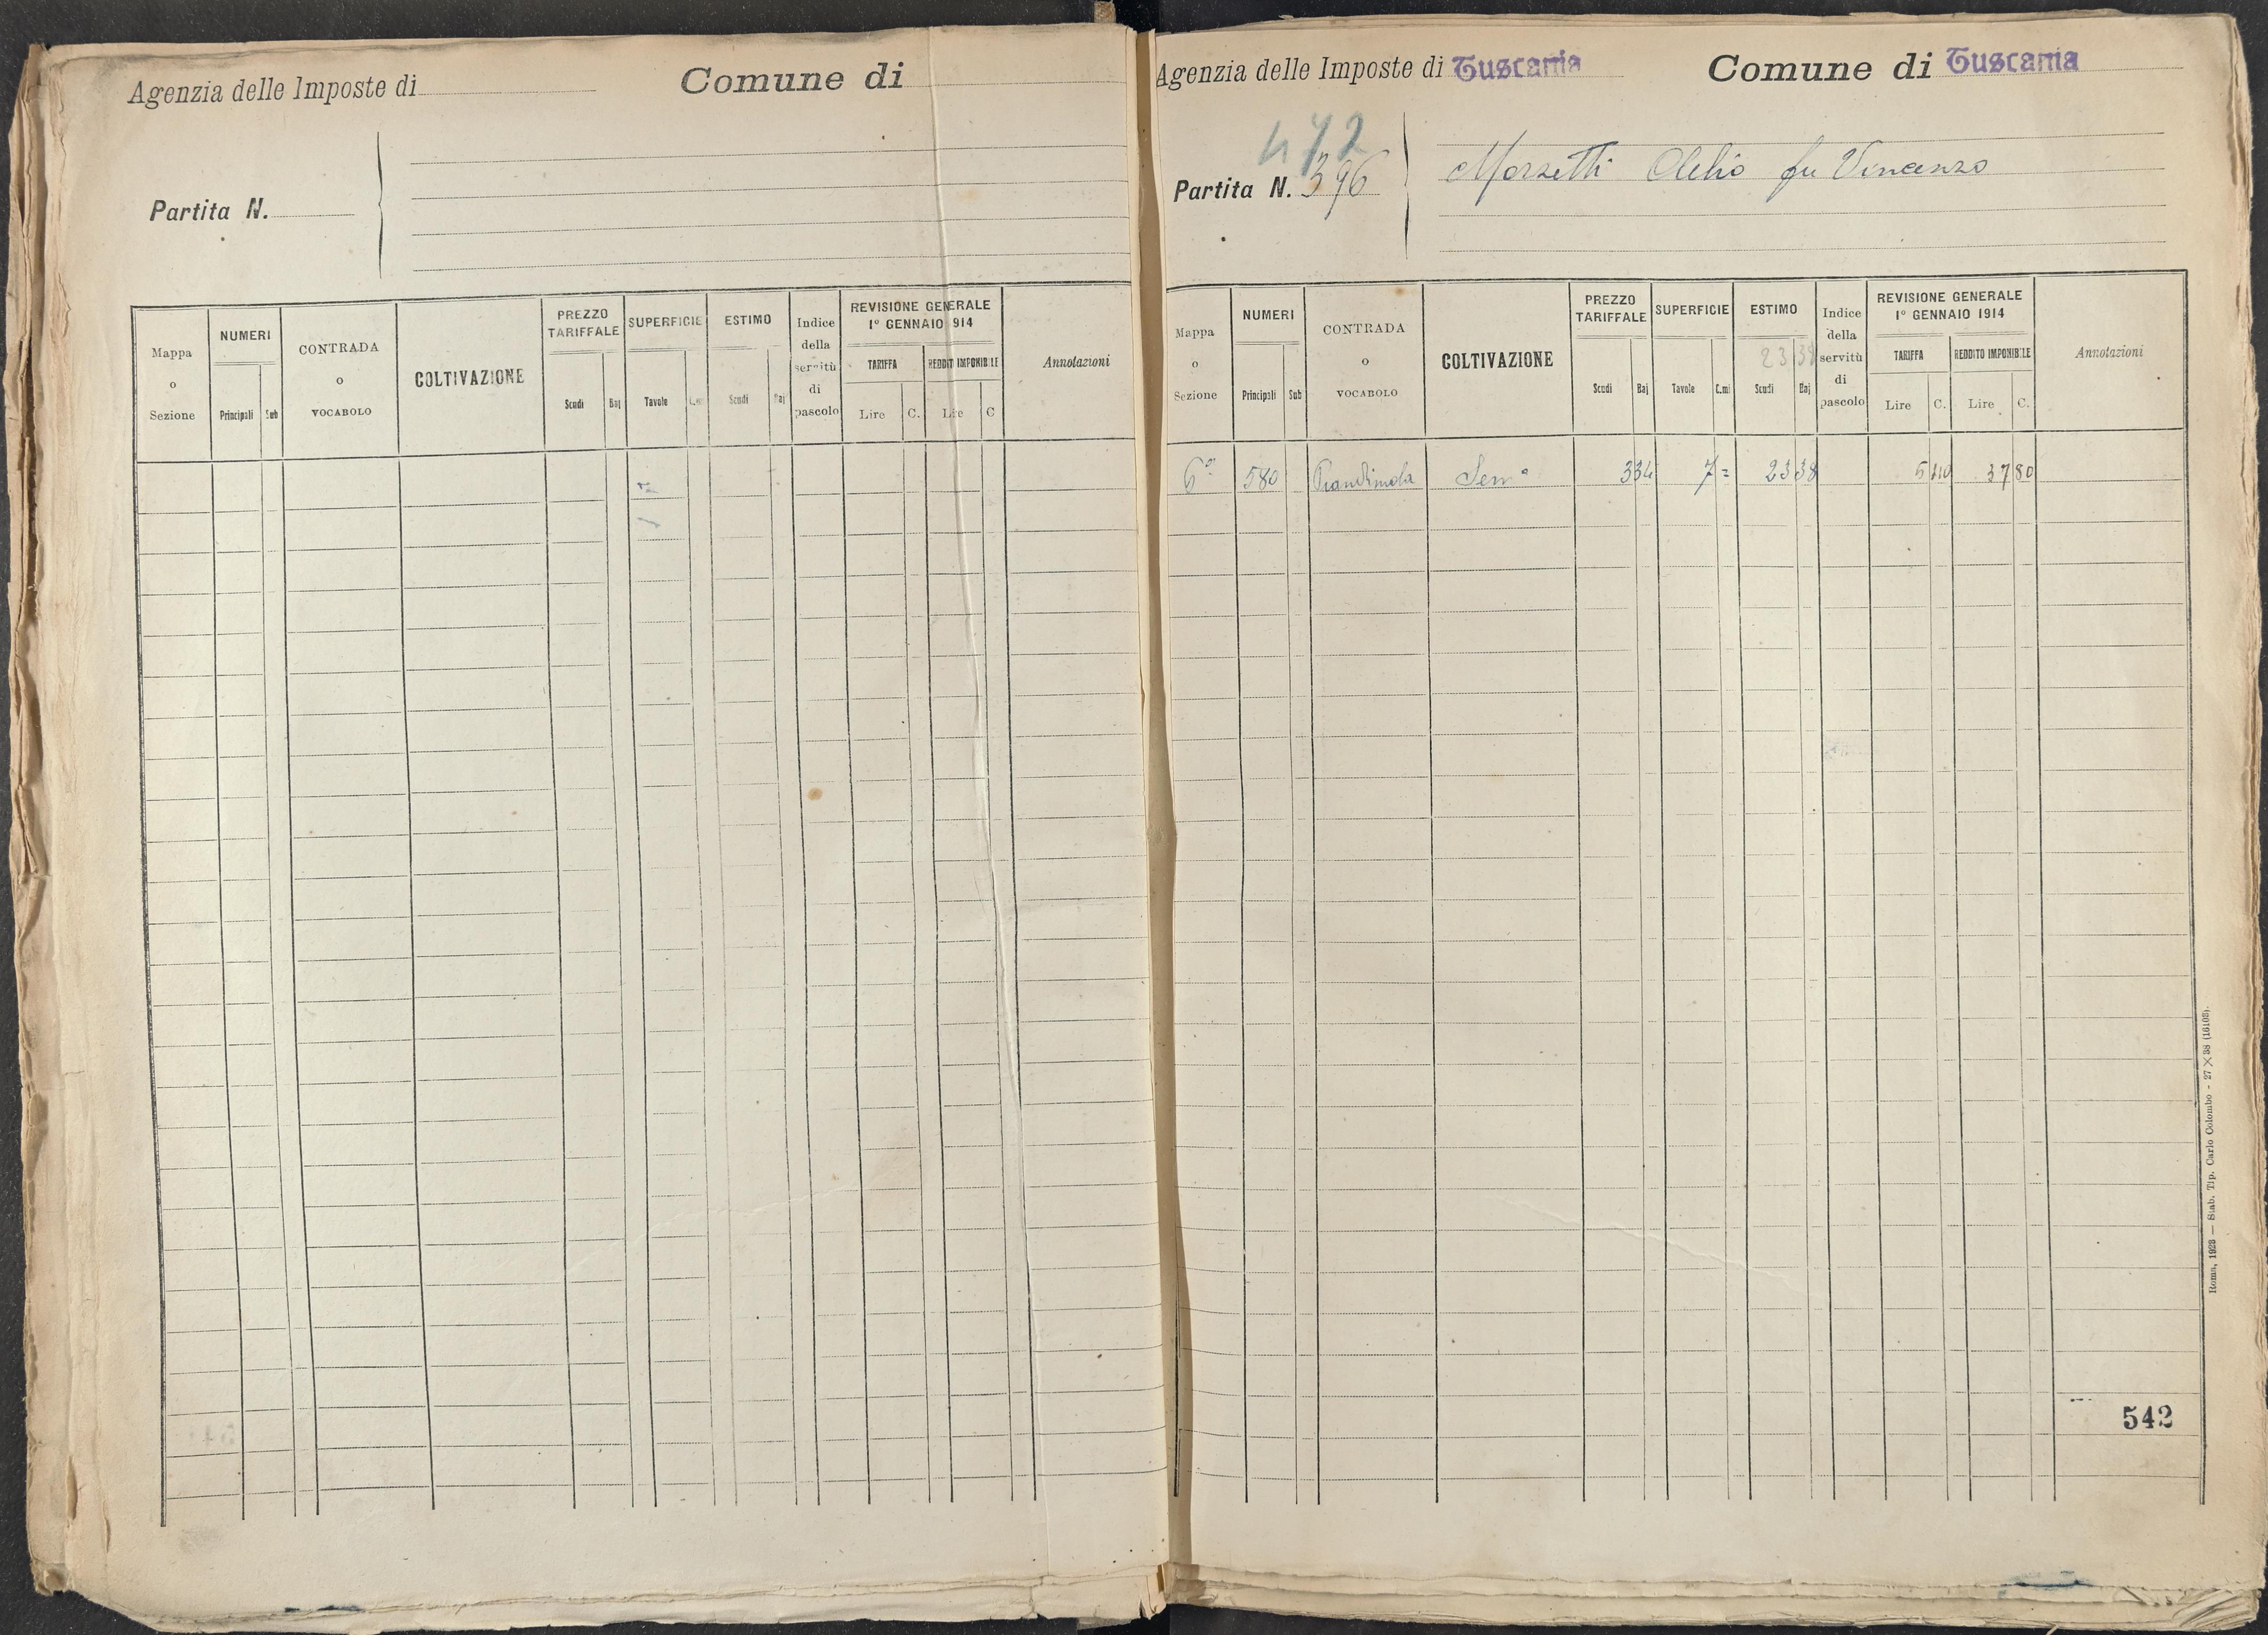 Agenzia delle Imposte di
Comune di
Partita N.
Mappa o Sezione
NUMERI
Principali
Sub
CONTRADA o VOCABOLO
COLTIVAZIONE
PREZZO TARIFFALE
Scudi
Baj
SUPERFICIE
Tavole
C.mi
ESTIMO
Scudi
Baj
Indice della servitù di pascolo
REVISIONE GENERALE
1° GENNAIO 914
TARIFFA
REDDITO IMPONIBILE
Lire
C.
Lire
C
Annotazioni
Agenzia delle Imposte di Tuscania
Comune di Tuscania
472
Partita N. 396
Morzetti Clelio fu Vincenzo
Mappa o Sezione
NUMERI
Principali
Sub
CONTRADA o VOCABOLO
COLTIVAZIONE
PREZZO TARIFFALE
Scudi
Baj
SUPERFICIE
Tavole
C.mi
ESTIMO
23 38
Scudi
Baj
Indice della servitù di pascolo
REVISIONE GENERALE
1° GENNAIO 1914
TARIFFA
REDDITO IMPONIBILE
Lire
C.
Lire
C.
Annotazioni
6ª 580 Piandimola Semo 3 34 7 = 23 38 5 40 37 80
542
Roma, 1923 — Stab. Tip. Carlo Colombo - 27 × 38 (16108).